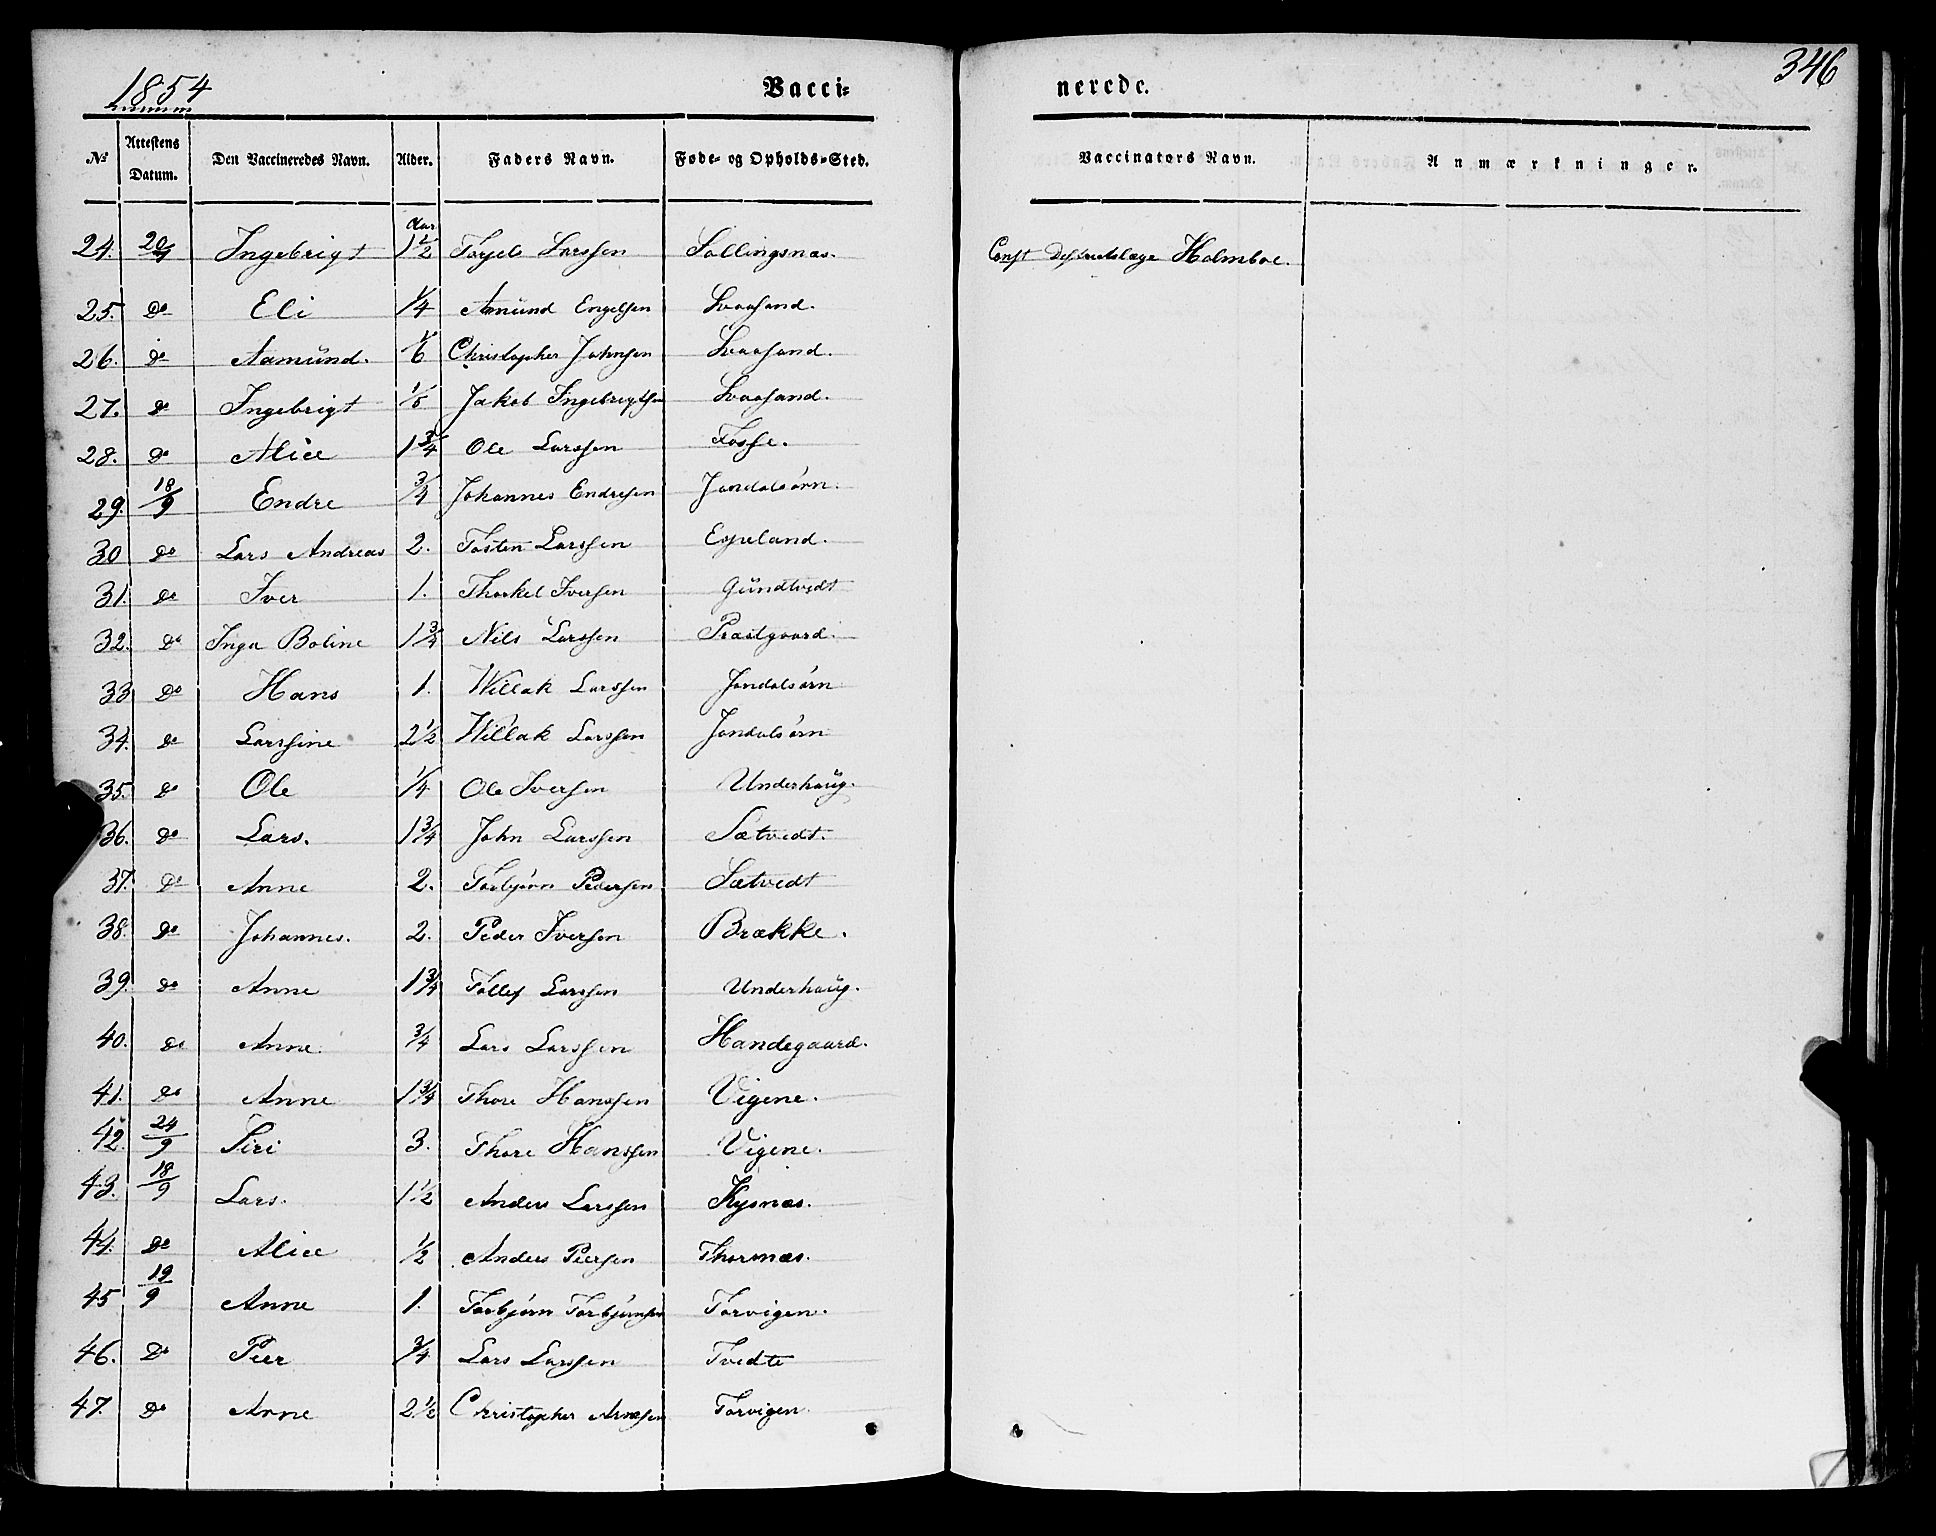 1854
346
Vacci=
nerede.
No Attestens Datum. Den Vaccineredes Navn. Alder. Faders Navn. Føde- og Opholds-Sted. Vaccinators Navn. Anmærkninger.
Aar
24. 20/9 Ingebrigt 1 1/2 Torjels Larssen Sollingsnæs. Const Districtslæge Holmboe.
25. Do Eli 1/4 Amünd Engelsen Svaasand.
26. do Aamünd. 1/6 Christopher Johnsen Svaasand.
27. do Ingebrigt Jakob Ingebrigtsen Svaasand.
28. do Alice 1 3/4 Ole Larssen Fosse.
29. 18/9 Endre 3/4 Johannes Endresen Jondalsørn.
30 do Lars Andreas 2. Tosten Larssen Espeland.
31. do Iver 1. Thorkel Iversen Gündtvedt
32. do Inga Boline 1 3/4 Nils Larssen Præstgaard.
33 Do Hans 1. Willak Larssen Jondalsørn
34. do Larssine 2 1/2 Willak Larssen Jondalsørn
35. do Ole 1/4 Ole Iversen Underhaüg.
36. do Lars. 1 3/4 John Larssen Sætvedt.
37. Do Anne 2. Torbjørn Pedersen Sætvedt
38. do Johannes. 2. Peder Iversen Brække.
39. do Anne 1 3/4 Tollef Larssen Underhaüg.
40. do Anne 3/4 Lars Larssen Handegaard.
41. do Anne 1 3/4 Thore Hanssen Vigene.
42. 24/9 Siri 3. Thore Hanssen Vigene.
43. 18/9 Lars. 1 1/2 Anders Larssen Kysnæs.
44. Do Alice 1/2 Anders Peersen Thornæs.
45 19/9 Anne 1. Torbjørn Torbjørnsen Torvigen.
46. Do Peer 3/4 Lars Larssen Tvedte
47. do Anne 2 1/2 Christopher Arnesen Torvigen.